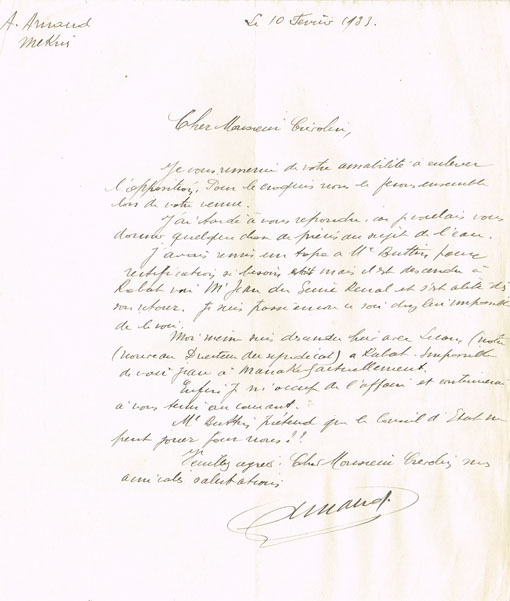 A. Arnaud
Le 10 Février 1933.
Meknès
Cher Monsieur
Je vous remercie de votre amabilité à enlever
l'opposition. Pour le croquis nous le ferons ensemble
lors de votre venue.
J'ai tardé à vous répondre, car je voulais vous
donner quelque chose de précis au sujet de l'eau.
J'avais remis un topo à Me Buttin pour
rectification si besoin mais il est descendu à
Rabat voir Mr Jean du Génie Rural et s'est alité dès
son retour. Je suis passé encore ce soir chez lui impossible
de le voir.
Moi même suis descendu hier avec (notre
(nouveau Directeur du syndicat) à Rabat. Impossible
de voir Jean à Marrakech actuellement.
Enfin je m'occupe de l'affaire et continuerai
à vous tenir au courant.
Me Buttin prétend que le Conseil d'Etat ne
peut jouer pour nous !!
Veuillez agréer, Cher Monsieur mes
amicales salutations
Arnaud.